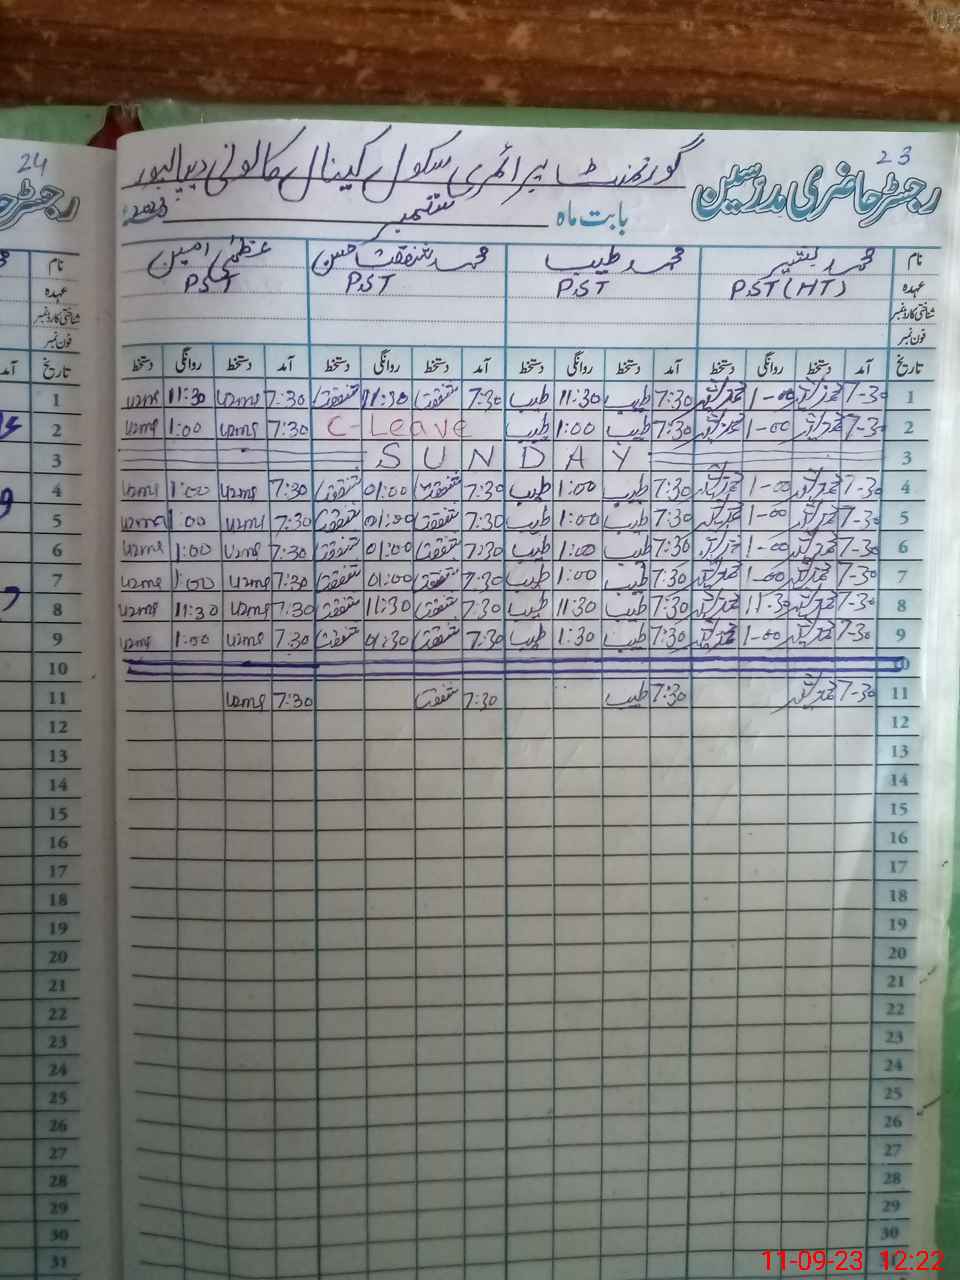 24
23
رجسٹر حاضری مدرسین
گورنمنٹ پرائمری سکول کینال کالونی دیپالپور
بابت ماہ ستمبر 2023
نام محمد بشیر محمد طیب محمد شفقت حسین عظمیٰ امین نام
عہدہ PST (HT) PST PST PST عہدہ
شناختی کارڈ نمبر شناختی کارڈ نمبر
فون نمبر فون نمبر
تاریخ آمد دستخط روانگی دستخط آمد دستخط روانگی دستخط آمد دستخط روانگی دستخط آمد دستخط روانگی دستخط تاریخ آمد
1 7-30 1-00 7:30 طیب 11:30 طیب 7:30 شفقت 11:30 شفقت 7:30 uzma 11:30 uzma 1
2 7-30 1-00 7:30 طیب 1:00 طیب C-Leave 7:30 uzma 1:00 uzma 2
3 SUNDAY 3
4 7-30 1-00 7:30 طیب 1:00 طیب 7:30 شفقت 01:00 شفقت 7:30 uzma 1:00 uzma 4
5 7-30 1-00 7:30 طیب 1:00 طیب 7:30 شفقت 01:00 شفقت 7:30 uzma 1:00 uzma 5
6 7-30 1-00 7:30 طیب 1:00 طیب 7:30 شفقت 01:00 شفقت 7:30 uzma 1:00 uzma 6
7 7-30 1-00 7:30 طیب 1:00 طیب 7:30 شفقت 01:00 شفقت 7:30 uzma 1:00 uzma 7
8 7-30 11-30 7:30 طیب 11:30 طیب 7:30 شفقت 11:30 شفقت 7:30 uzma 11:30 uzma 8
9 7-30 1-00 7:30 طیب 1:30 طیب 7:30 شفقت 01:30 شفقت 7:30 uzma 1:00 uzma 9
10 10
11 7-30 7:30 طیب 7:30 شفقت 7:30 uzma 11
12 12
13 13
14 14
15 15
16 16
17 17
18 18
19 19
20 20
21 21
22 22
23 23
24 24
25 25
26 26
27 27
28 28
29 29
30 30
31
11-09-23 12:22